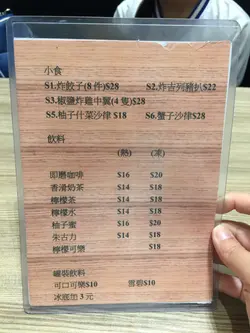 小食
S1.炸餃子(8 件)$28 S2.炸吉列豬扒$22
S3.椒鹽炸雞中翼(4 隻)$28
S5.柚子什菜沙律 $18 S6.蟹子沙律$28
飲料
(熱) (凍)
即磨咖啡 $16 $20
香滑奶茶 $14 $18
檸檬茶 $14 $18
檸檬水 $14 $18
柚子蜜 $16 $20
朱古力 $14 $18
檸檬可樂 $18
罐裝飲料
可口可樂$10 雪碧$10
冰底加 3 元